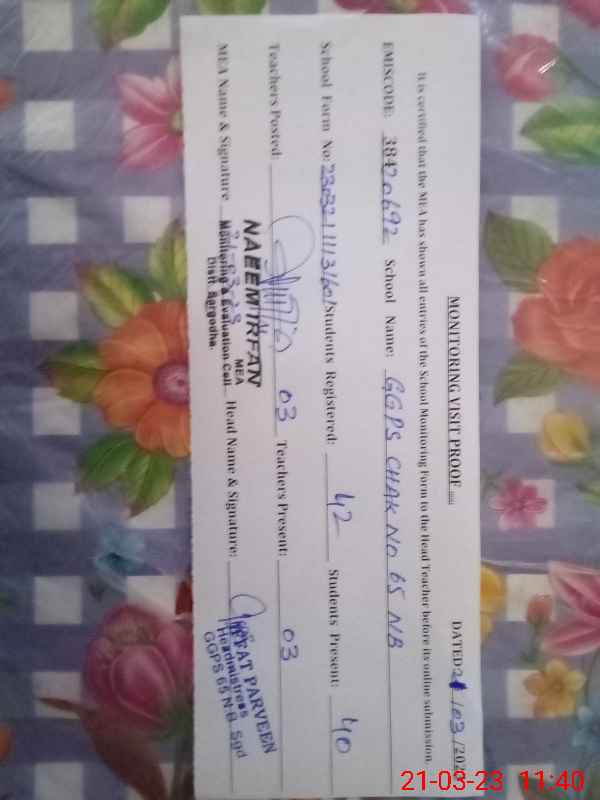 MONITORING VISIT PROOF
DATED 21/03/202
It is certified that the MEA has shown all entries of the School Monitoring Form to the Head Teacher before its online submission.
EMISCODE: 38420692 School Name: GGPS CHAK NO 65 NB
School Form No: Students Registered: 42 Students Present: 40
Teachers Posted: 03 Teachers Present: 03
MEA Name & Signature Head Name & Signature:
NAEEM IRFAN
MEA
Monitoring & Evaluation Cell
Distt Sargodha.
PARVEEN
Headmistress
GGPS 65 N.B Sgd
21-03-23 11:40